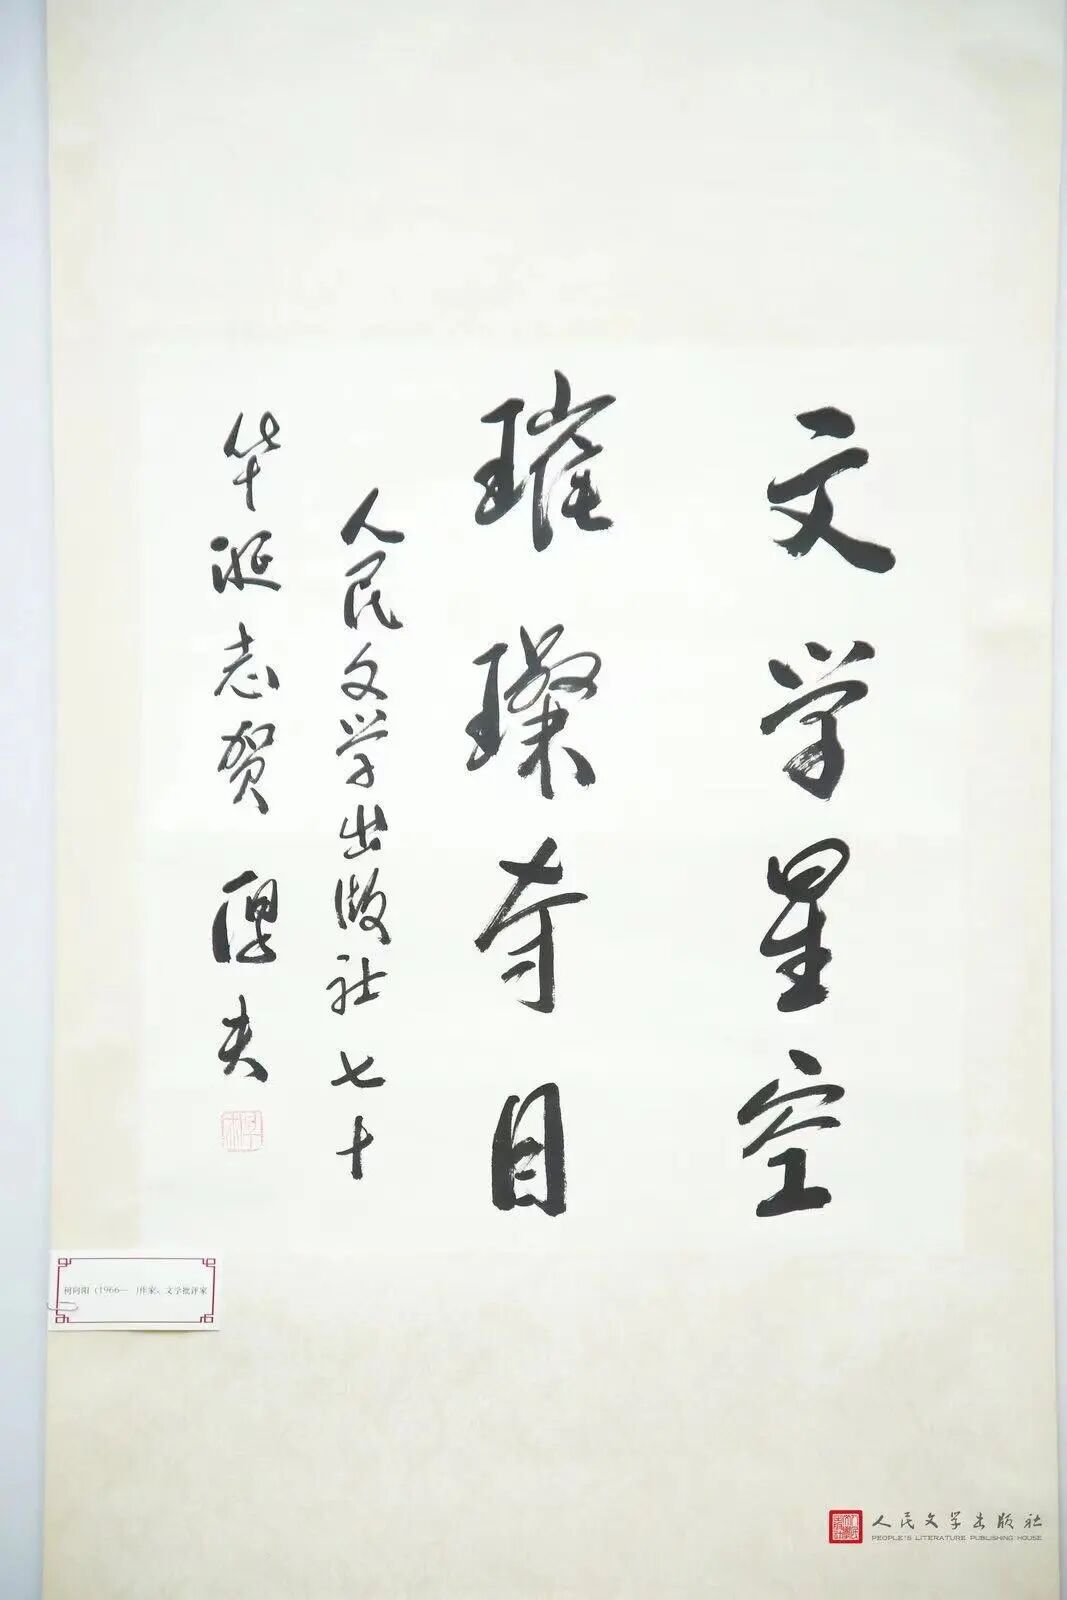 文学星空
璀璨夺目
人民文学出版社七十
华诞志贺 厚夫
何向阳（1966— ）作家、文学批评家
人民文学出版社
PEOPLE'S LITERATURE PUBLISHING HOUSE